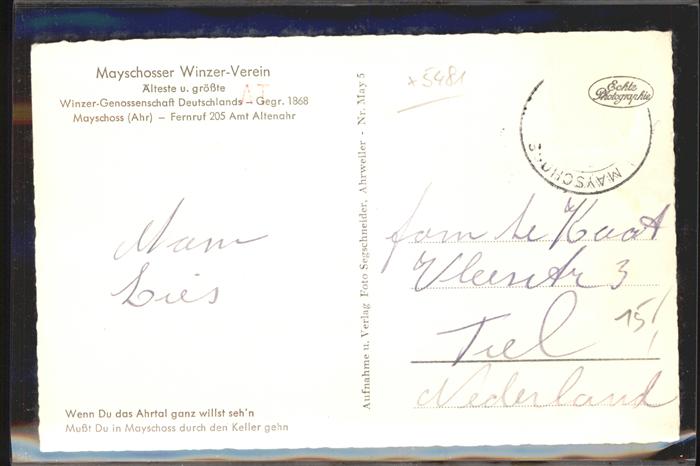 Mayschosser Winzer-Verein
Älteste u. größte
Winzer-Genossenschaft Deutschlands – Gegr. 1868
Mayschoss (Ahr) – Fernruf 205 Amt Altenahr
AT
Mam
Lies
Wenn Du das Ahrtal ganz willst seh'n
Mußt Du in Mayschoss durch den Keller gehn
Aufnahme u. Verlag Foto Segschneider, Ahrweiler - Nr. May 5
x5481
Echte
Photographie
MAYSCHO
fam te Kaat
Vleestr 3
Tiel
15
Nederland